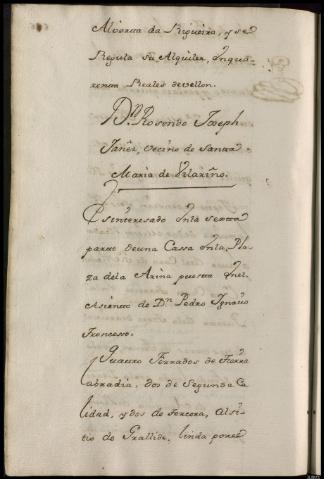 Alborca da Rigueira, y se
Regula su Alquiler, En qua=
renta Reales de vellon.
Dn. Rosendo Joseph
Yañez, vecino de Santa
Maria de Vilariño.
Es interesado En la sexta
parte de una Cassa En la Pla-
za dela Arina puesta En el
Asiento de Dn Pedro Ignacio
Troncosso.
Quatro Ferrados de Tierra
Labradia, dos de Segunda Ca
lidad, y dos de tercera, al si-
tio de Grallide, linda poreel